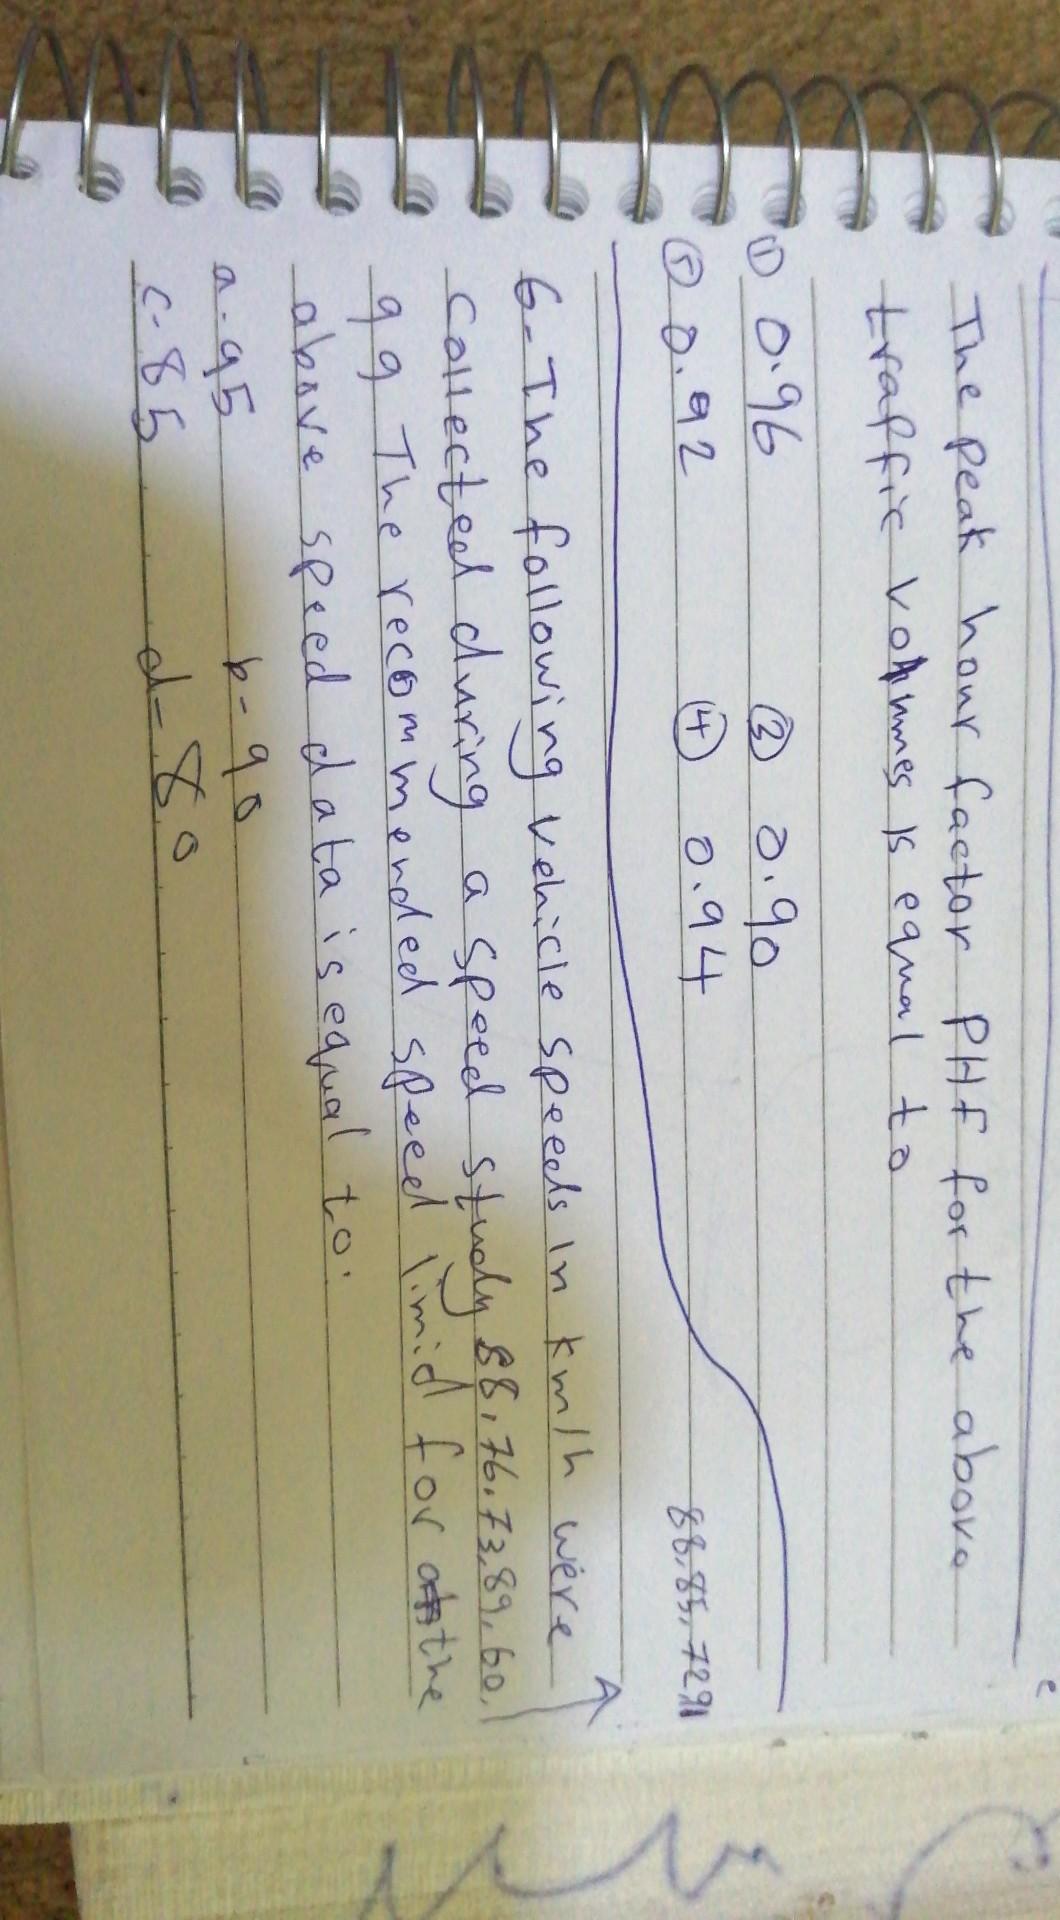 The peak hour factor PHF for the above
traffic volumes is equal to
① 0.96 ② 0.90
0.92 ④ 0.94
88,85,72,91
6-The following vehicle speeds In km/h were
Collected during a speed study 88,76,73,89,60,
99 The recommended speed limid for the
above speed data is equal to:
a-95 b-90
c-85 d-80